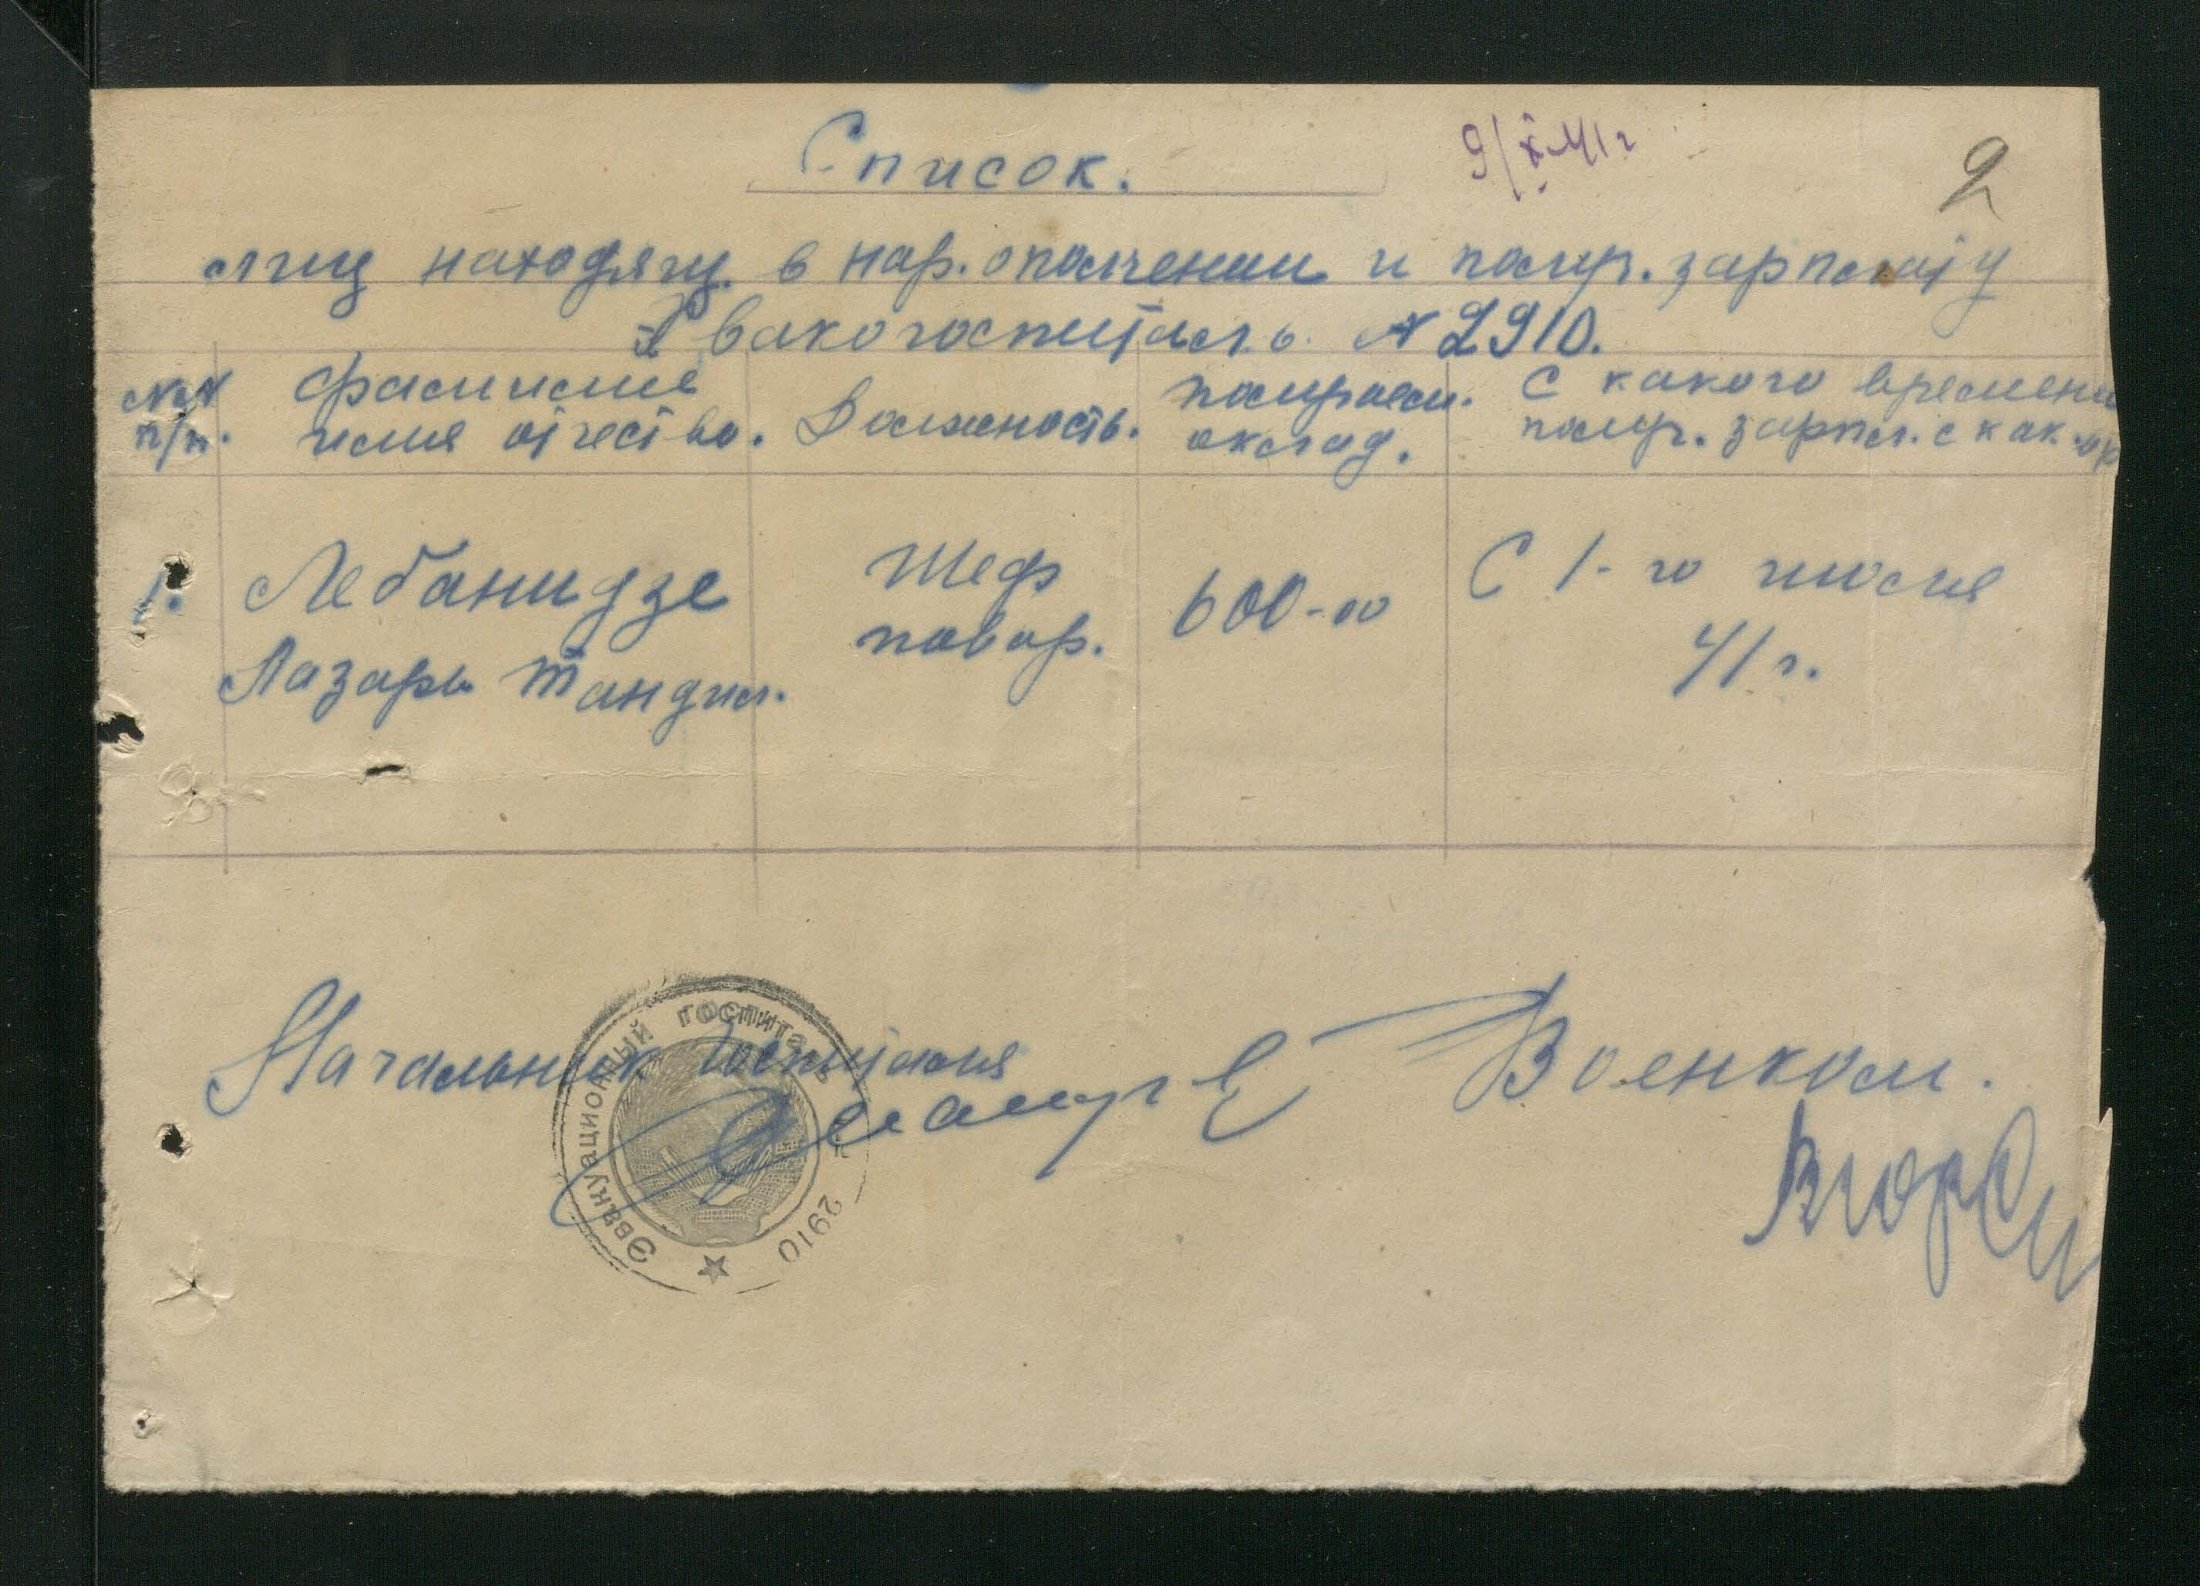 Список.
9/X-41 г
2
лиц находящ. в нар. ополчении и получ. зарплату
Эвакогоспиталь №2910.
№№ п/п.
Фамилия
имя отчество.
Должность.
получаем.
оклад.
С какого времени
получ. зарпл. с как.
1.
Лебанидзе
Лазарь Тандил.
Шеф
повар.
600-00
С 1-го июля
41 г.
Начальник Госпиталя
Военком.
Эвакуационный госпиталь
2910